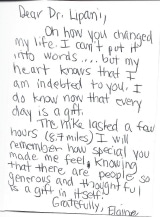 Dear Dr. Lipani,
Oh how you changed
my life. I can't put it
into words.... but my
heart knows that I
am indebted to you. I
do know now that every
day is a gift.
The hike lasted a few
hours (8.7 miles) I will
remember how special you
made me feel, knowing
that there are people so
generous and thoughtful
is a gift in itself.
Gratefully,
Elaine